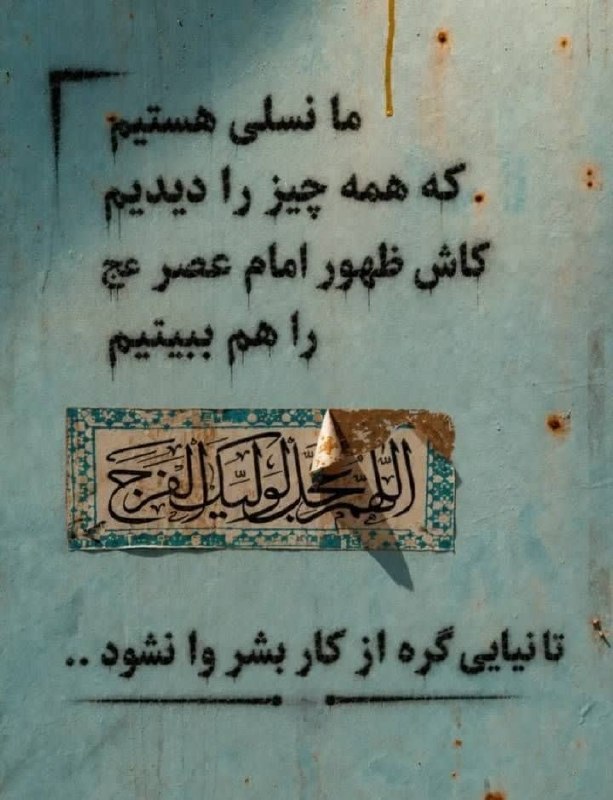 ما نسلی هستیم
که همه چیز را دیدیم
کاش ظهور امام عصر عج
را هم ببیتیم
اللّهمّ عجّل لولیّک الفرج
تا نیایی گره از کار بشر وا نشود ..